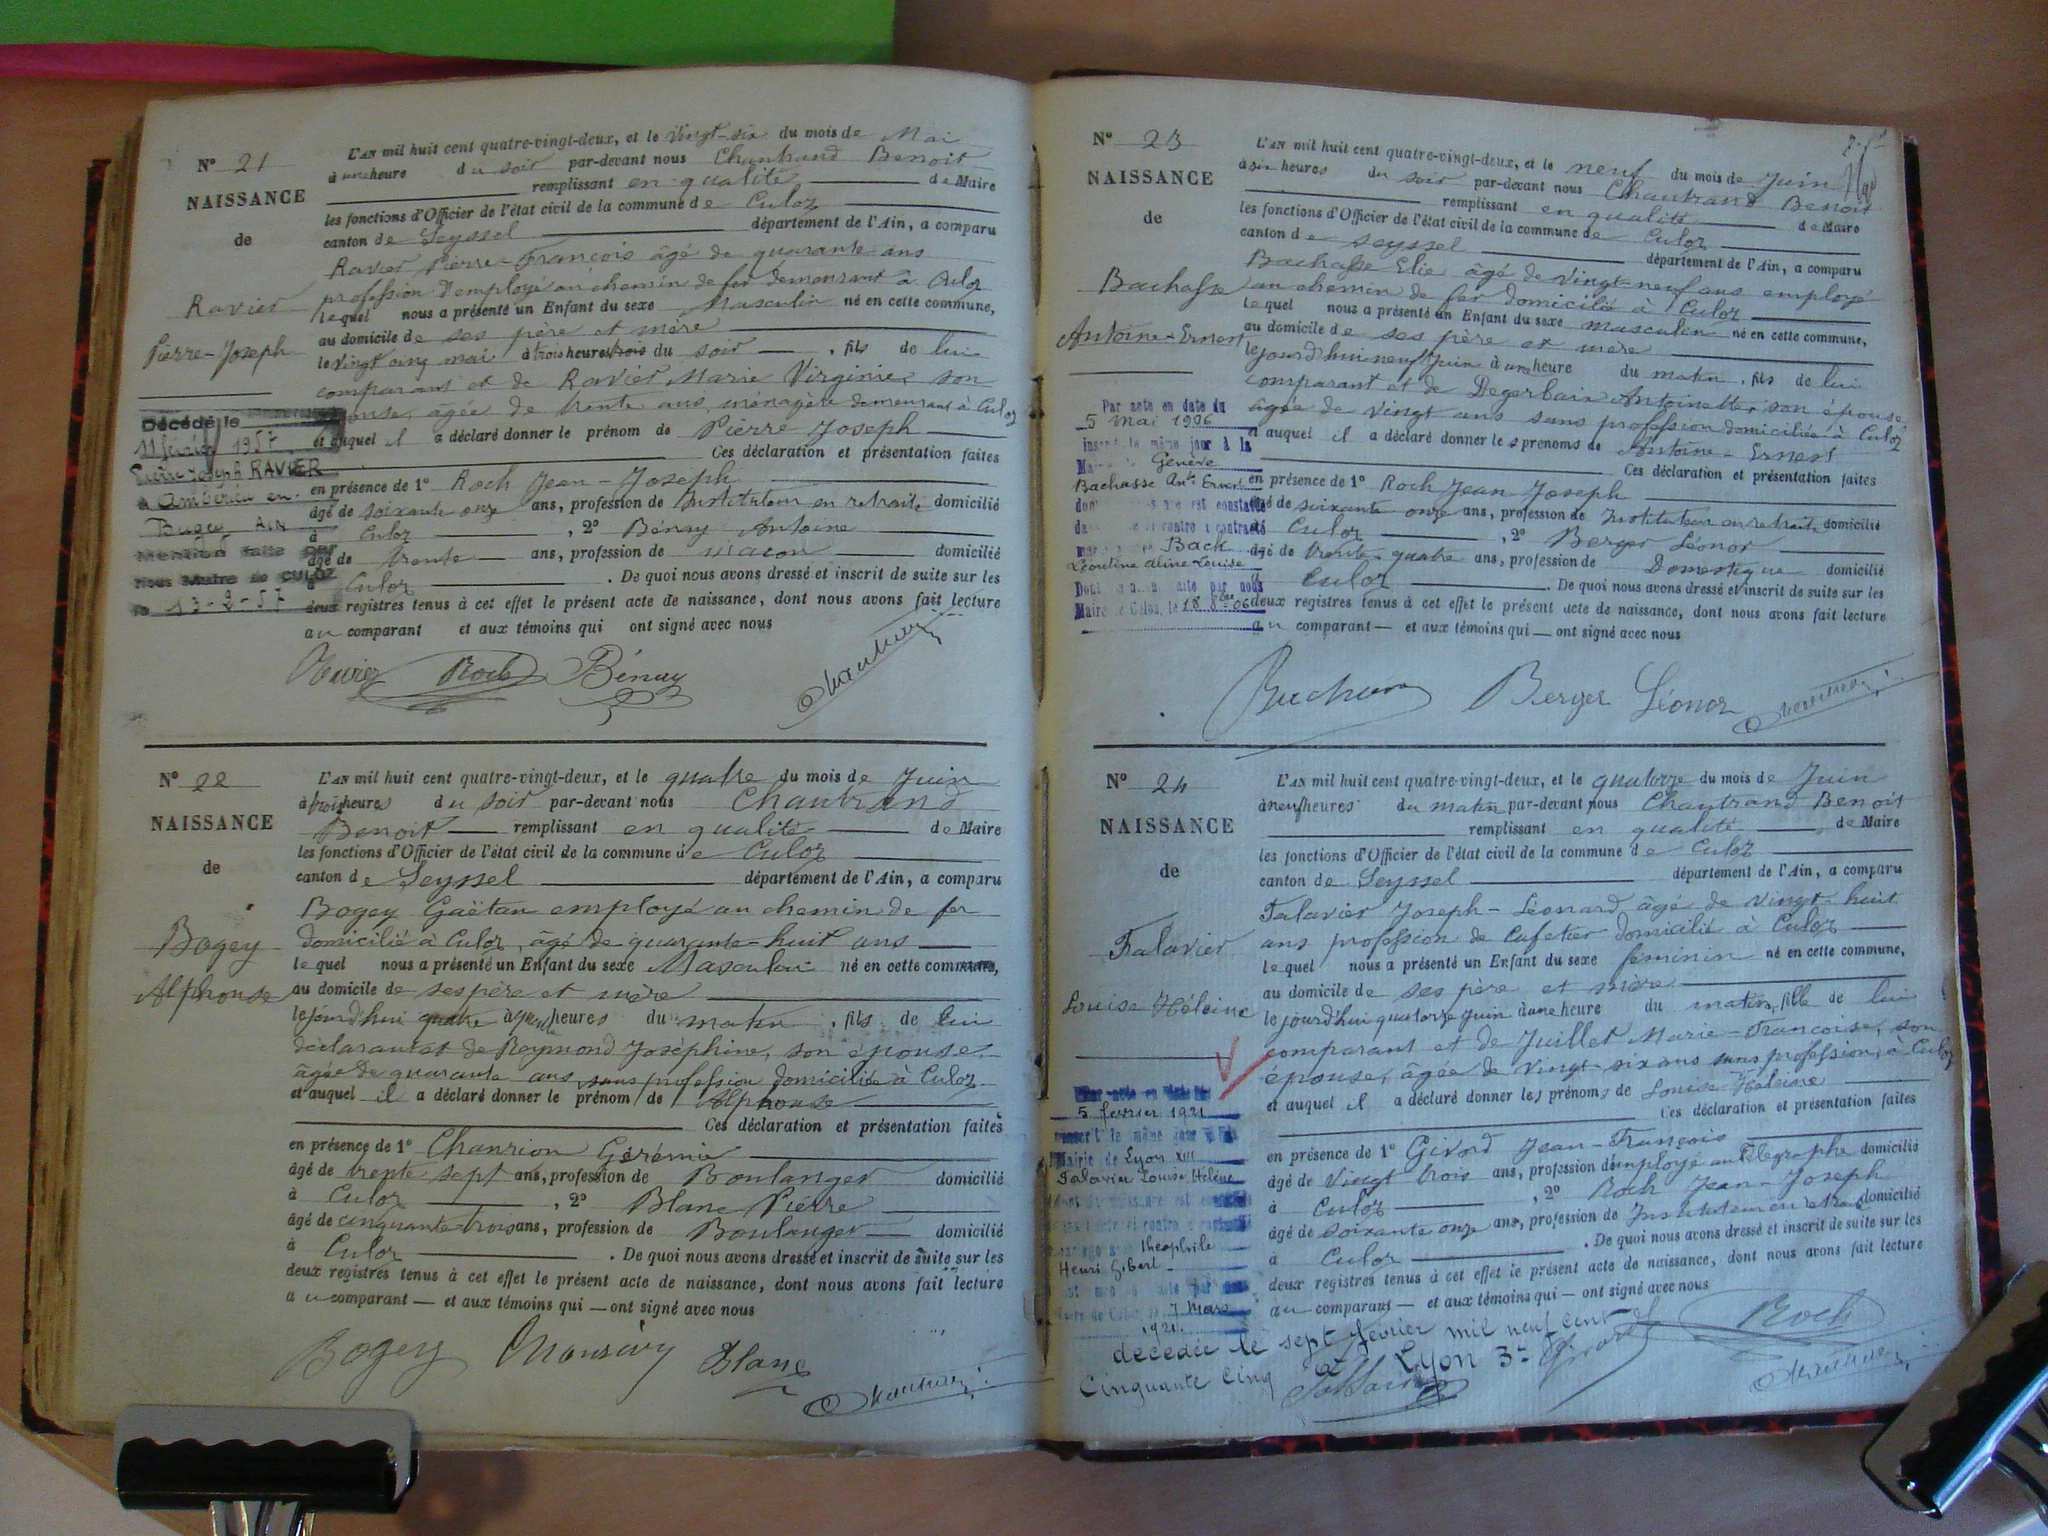 N° 21
NAISSANCE
de
Ravier
Pierre-Joseph
Décédé le
11 février 1957
Pierre Joseph RAVIER
à Ambérieu en
Bugey AIN
Mention faite par
Nous Maire de CULOZ
le 13-2-57
L'AN mil huit cent quatre-vingt-deux, et le vingt-six du mois de Mai
à une heure du soir par-devant nous Chantrand Benoit
remplissant en qualité de Maire
les fonctions d'Officier de l'état civil de la commune de Culoz
canton de Seyssel département de l'Ain, a comparu
Ravier Pierre-François âgé de quarante ans
profession d'employé au chemin de fer demeurant à Culoz
lequel nous a présenté un Enfant du sexe Masculin né en cette commune,
au domicile de ses père et mère
le vingt cinq mai à trois heures du soir , fils de lui
comparant et de Ravier Marie Virginie, son
épouse, âgée de trente ans, ménagère demeurant à Culoz
et auquel il a déclaré donner le prénom de Pierre Joseph
Ces déclaration et présentation faites
en présence de 1° Roch Jean-Joseph
âgé de soixante onze ans, profession de Instituteur en retraite domicilié
à Culoz , 2° Bénay Antoine
âgé de trente ans, profession de maçon domicilié
à Culoz . De quoi nous avons dressé et inscrit de suite sur les
deux registres tenus à cet effet le présent acte de naissance, dont nous avons fait lecture
au comparant et aux témoins qui ont signé avec nous
Ravier Roch Bénay Chantrand
N° 22
NAISSANCE
de
Bogey
Alphonse
L'AN mil huit cent quatre-vingt-deux, et le quatre du mois de Juin
à trois heures du soir par-devant nous Chantrand
Benoit remplissant en qualité de Maire
les fonctions d'Officier de l'état civil de la commune de Culoz
canton de Seyssel département de l'Ain, a comparu
Bogey Gaëtan employé au chemin de fer
domicilié à Culoz, âgé de quarante-huit ans
lequel nous a présenté un Enfant du sexe Masculin né en cette commune,
au domicile de ses père et mère
le jourd'hui quatre à heures du matin , fils de lui
déclarant et de Reymond Joséphine, son épouse,
âgée de quarante ans sans profession domiciliée à Culoz
et auquel il a déclaré donner le prénom de Alphonse
Ces déclaration et présentation faites
en présence de 1° Chanrion Gérémie
âgé de trente sept ans, profession de Boulanger domicilié
à Culoz , 2° Blanc Pierre
âgé de cinquante-trois ans, profession de Boulanger domicilié
à Culoz . De quoi nous avons dressé et inscrit de suite sur les
deux registres tenus à cet effet le présent acte de naissance, dont nous avons fait lecture
au comparant et aux témoins qui ont signé avec nous
Bogey Blanc Chantrand
N° 23
NAISSANCE
de
Bachasse
Antoine-Ernest
Par acte en date du
5 mai 1906
inscrit le même jour à la
Mairie de Genève
Bachasse Ant. Ernest
dont la naissance est constatée
dans l'acte ci contre a contracté
mariage avec Back
Léontine Aline Louise
Dont mention faite par nous
Maire de Culoz, le 18 8bre 06
L'AN mil huit cent quatre-vingt-deux, et le neuf du mois de Juin
à six heures du soir par-devant nous Chantrand Benoit
remplissant en qualité de Maire
les fonctions d'Officier de l'état civil de la commune de Culoz
canton de Seyssel département de l'Ain, a comparu
Bachasse Elie âgé de vingt-neuf ans employé
au chemin de fer domicilié à Culoz
lequel nous a présenté un Enfant du sexe masculin né en cette commune,
au domicile de ses père et mère
le jourd'hui neuf Juin à une heure du matin , fils de lui
comparant et de Degerbaix Antoinette, son épouse,
âgée de vingt ans sans profession domiciliée à Culoz
et auquel il a déclaré donner les prénoms de Antoine-Ernest
Ces déclaration et présentation faites
en présence de 1° Roch Jean Joseph
âgé de soixante onze ans, profession de Instituteur en retraite domicilié
à Culoz , 2° Berger Léonor
âgé de trente-quatre ans, profession de Domestique domicilié
à Culoz . De quoi nous avons dressé et inscrit de suite sur les
deux registres tenus à cet effet le présent acte de naissance, dont nous avons fait lecture
au comparant et aux témoins qui ont signé avec nous
Berger Léonor Chantrand
N° 24
NAISSANCE
de
Falavier
Louise Héleine
5 février 1921
transcrit le même jour à la
Mairie de Lyon XIII
Falavier Louise Hélène
Théophile
Henri Gibert
7 Mars
1921
L'AN mil huit cent quatre-vingt-deux, et le quatorze du mois de Juin
à neuf heures du matin par-devant nous Chantrand Benoit
remplissant en qualité de Maire
les fonctions d'Officier de l'état civil de la commune de Culoz
canton de Seyssel département de l'Ain, a comparu
Falavier Joseph-Léonard âgé de vingt-huit
ans profession de Cafetier domicilié à Culoz
lequel nous a présenté un Enfant du sexe féminin né en cette commune,
au domicile de ses père et mère
le jourd'hui quatorze Juin à une heure du matin, fille de lui
comparant et de Juillet Marie-Françoise, son
épouse, âgée de vingt-six ans sans profession, à Culoz
et auquel il a déclaré donner les prénoms de Louise-Héleine
Ces déclaration et présentation faites
en présence de 1° Girod Jean-François
âgé de vingt trois ans, profession d'employé au télégraphe domicilié
à Culoz , 2° Roch Jean-Joseph
âgé de soixante onze ans, profession de Instituteur en retraite domicilié
à Culoz . De quoi nous avons dressé et inscrit de suite sur les
deux registres tenus à cet effet le présent acte de naissance, dont nous avons fait lecture
au comparant et aux témoins qui ont signé avec nous
Girod Roch
Chantrand
décédée le sept février mil neuf cent
cinquante cinq à Lyon 3e